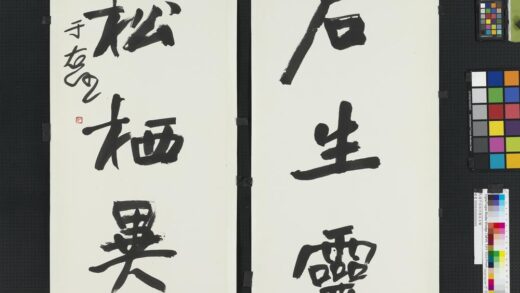 石生靈
松栖異
于右任